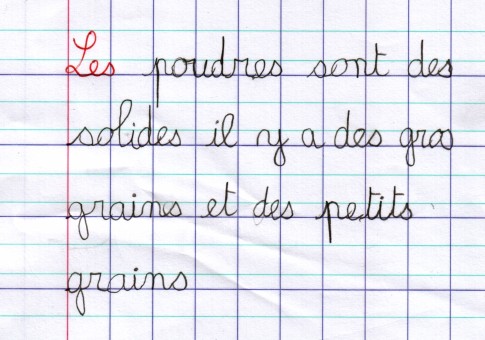 Les poudres sont des
solides il y a des gros
grains et des petits
grains